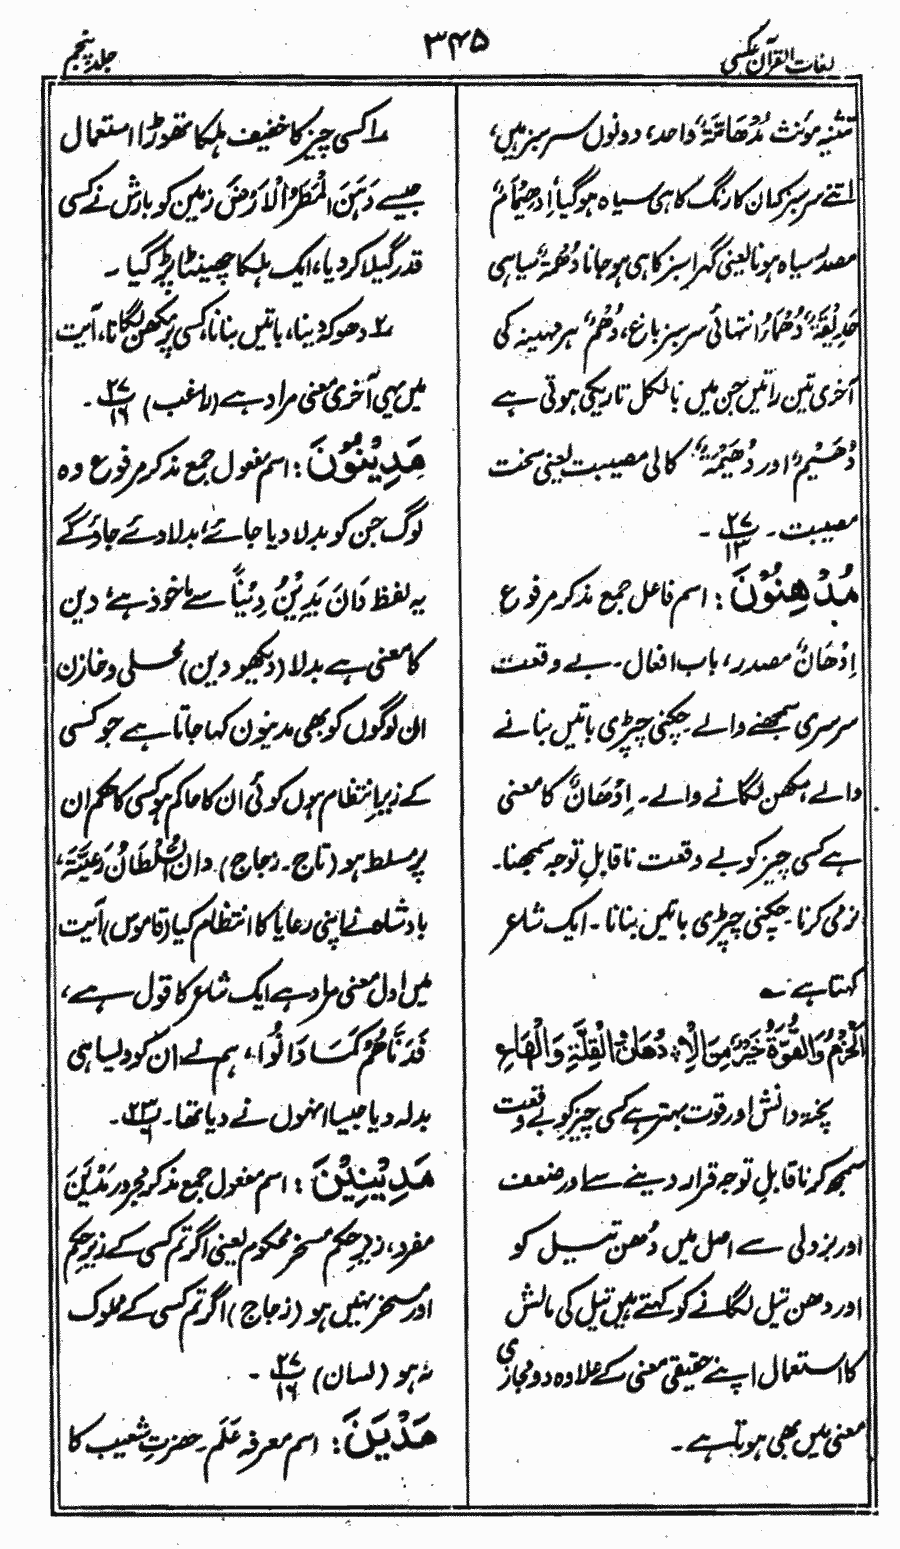 لغات القرآن عکسی
۳۴۵
جلد پنجم
تثنیہ مؤنث مُدْهَامَّةٌ واحد، دونوں سرسبز ہیں،
اتنے سرسبز کہ ان کا رنگ کاہی سیاہ ہو گیا اِدْهِيْمَامٌ
مصدر سیاہ ہونا یعنی گہرا سبز کاہی ہو جانا دُهْمَةٌ سیاہی
حَدِيْقَةٌ دُهْمَاءُ انتہائی سرسبز باغ، دُهْمٌ ہر مہینہ کی
آخری تین راتیں جن میں بالکل تاریکی ہوتی ہے
دُهَيْمٌ اور دُهَيْمَةٌ کالی مصیبت یعنی سخت
مصیبت۔ ۲۷/۱۳ ۔
مُدْهِنُوْنَ : اسم فاعل جمع مذکر مرفوع
اِدْهَانٌ مصدر، باب افعال۔ بے وقعت
سرسری سمجھنے والے۔ چکنی چپڑی باتیں بنانے
والے مکھن لگانے والے۔ اِدْهَانٌ کا معنی
ہے کسی چیز کو بے وقعت ناقابلِ توجہ سمجھنا۔
نرمی کرنا۔ چکنی چپڑی باتیں بنانا۔ ایک شاعر
کہتا ہے ؎
اَلْحَزْمُ وَالْقُوَّةُ خَيْرٌ مِنَ الْاِدْهَانِ وَالْقِلَّةِ وَالْهَاعِ
پختہ دانش اور قوت بہتر ہے کسی چیز کو بے وقعت
سمجھ کر ناقابلِ توجہ قرار دینے سے اور ضعف
اور بزدلی سے اصل میں دُھن تیل کو
اور دھن تیل لگانے کو کہتے ہیں تیل کی مالش
کا استعمال اپنے حقیقی معنی کے علاوہ دو مجازی
معنی میں بھی ہوتا ہے۔
۱؎ کسی چیز کا خفیف ہلکا تھوڑا استعمال
جیسے دَهَنَ الْمَطَرُ الْاَرْضَ زمین کو بارش نے کسی
قدر گیلا کر دیا، ایک ہلکا چھینٹا پڑ گیا۔
۲؎ دھوکہ دینا، باتیں بنانا، کسی پر مکھن لگانا، آیت
میں یہی آخری معنی مراد ہے (راغب) ۲۷/۱۶ ۔
مَدِيْنُوْنَ : اسم مفعول جمع مذکر مرفوع وہ
لوگ جن کو بدلا دیا جائے، بدلا دئے جاؤ گے
یہ لفظ دَانَ يَدِيْنُ دِيْنًا سے ماخوذ ہے، دین
کا معنی ہے بدلا (دیکھو دین) محلی و خازن
ان لوگوں کو بھی مدینون کہا جاتا ہے جو کسی
کے زیرِ انتظام ہوں کوئی ان کا حاکم ہو کسی کا حکم ان
پر مسلط ہو (تاج۔ زجاج) دان السُّلْطَانُ رَعِيَّتَهٗ،
بادشاہ نے اپنی رعایا کا انتظام کیا (قاموس) آیت
میں اول معنی مراد ہے ایک شاعر کا قول ہے،
قَدَنَّاهُمْ كَمَا دَانُوْا، ہم نے ان کو ویسا ہی
بدلہ دیا جیسا انہوں نے دیا تھا۔ ۲۳/۶ ۔
مَدِيْنِيْنَ : اسم مفعول جمع مذکر مجرور مَدْيَنٌ
مفرد، زیرِ حکم مسخر محکوم یعنی اگر تم کسی کے زیرِ حکم
اور مسخر نہیں ہو (زجاج) اگر تم کسی کے مملوک
نہ ہو (لسان) ۲۷/۱۶ ۔
مَدْيَنَ : اسم معرفہ عَلَم۔ حضرتِ شعیب کا